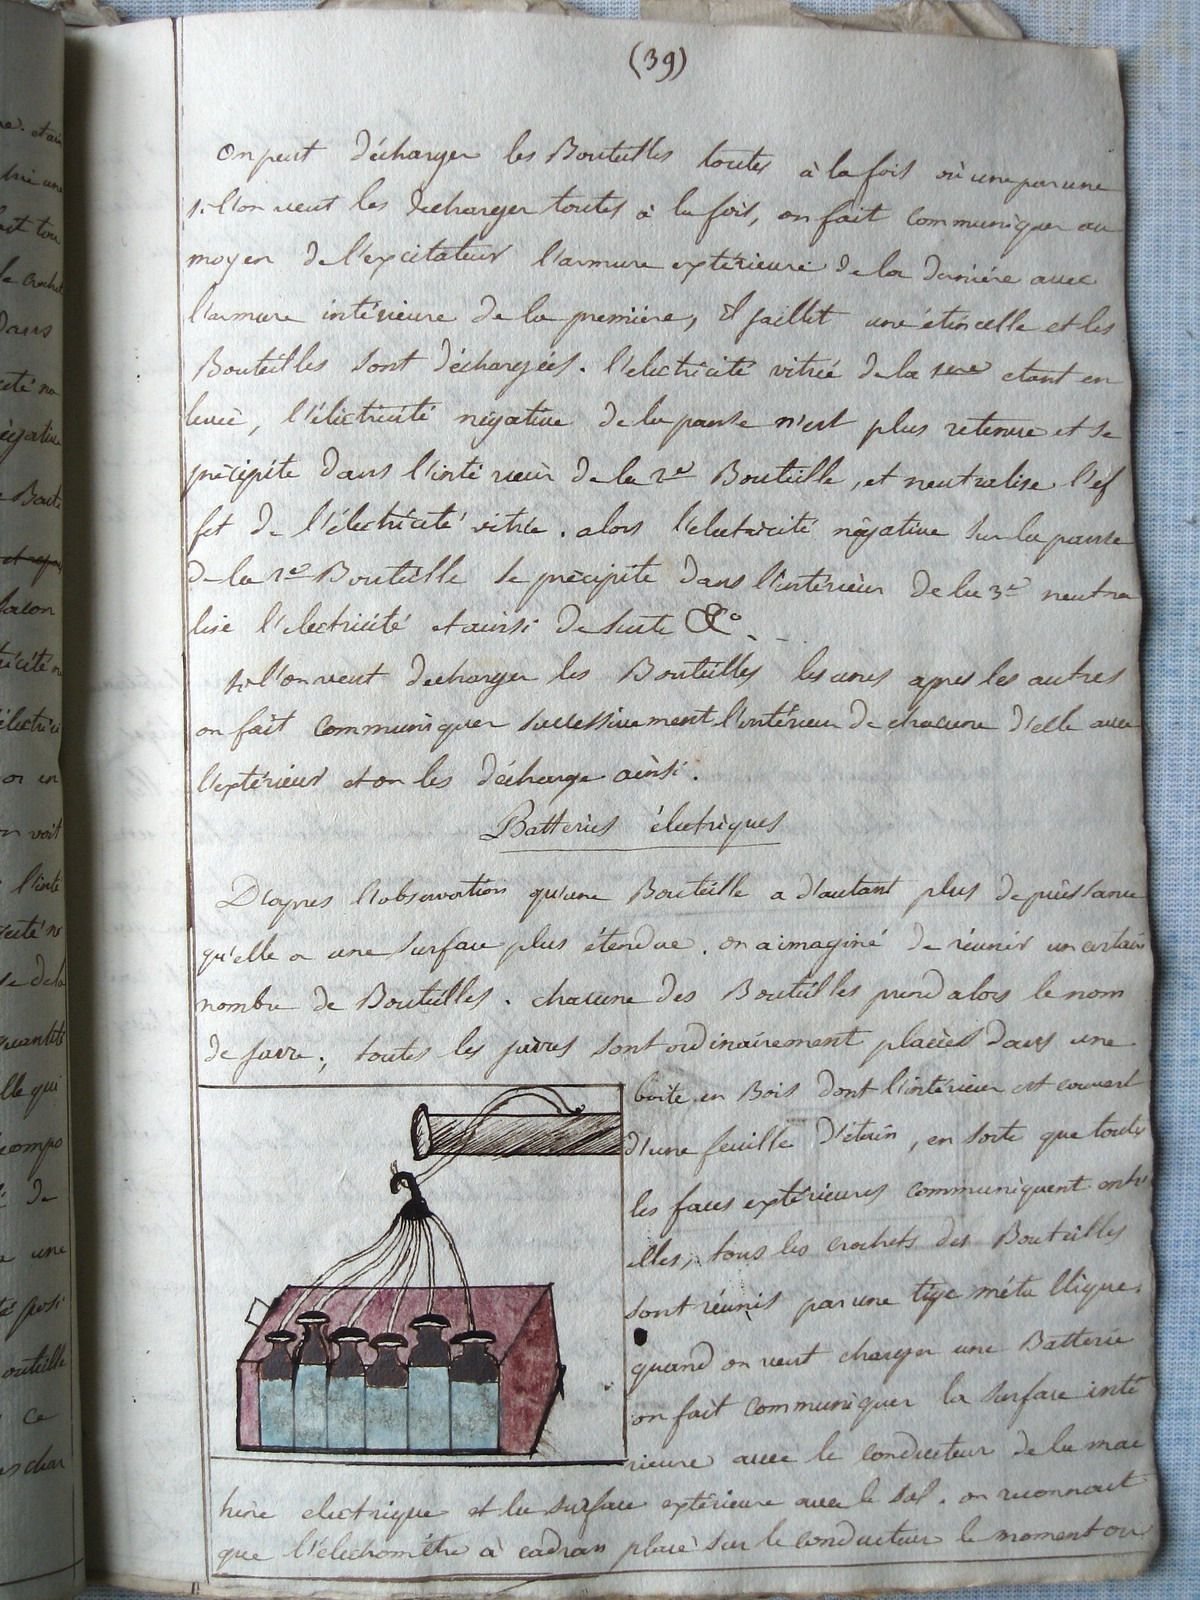 (39)
On peut décharger les Bouteilles toutes à la fois où une par une
si l'on veut les decharger toutes à la fois, on fait communiquer au
moyen de l'excitateur l'armure extérieure de la dernière avec
l'armure intérieure de la première, Il jaillit une étincelle et les
Bouteilles sont déchargées. l'electricité vitrée de la 1ere etant en
levée, l'électricité négative de la panse n'est plus retenue et se
précipite dans l'inté rieur de la 2e Bouteille, et neutralise l'ef
fet de l'électricité vitrée. alors l'electricité négative sur la panse
de la 2e Bouteille se précipite dans l'intérieur de la 3e neutra
lise l'electricité et ainsi de suite &c.
si l'on veut decharger les Bouteilles les unes apres les autres
on fait communiquer successivement l'intérieur de chacune d'elle avec
l'extérieur et on les décharge ainsi.
Batteries électriques
D'apres l'observation qu'une Bouteille a d'autant plus de puissance
qu'elle a une surface plus étendue. on a imaginé de réunir un certain
nombre de Bouteilles. chacune des Bouteilles prend alors le nom
de jarre; toutes les jarres sont ordinairement placées dans une
boite en Bois dont l'intérieur est couvert
d'une feuille d'étain, en sorte que toutes
les faces extérieures communiquent entr'
elles, tous les crochets des Bouteilles
sont réunis par une tige métallique.
quand on veut charger une Batterie
on fait communiquer la surface inté
rieure avec le conducteur de la mac
hine electrique et la surface extérieure avec le sol. on reconnait
que l'électromètre à cadran placé sur le conducteur le moment ou